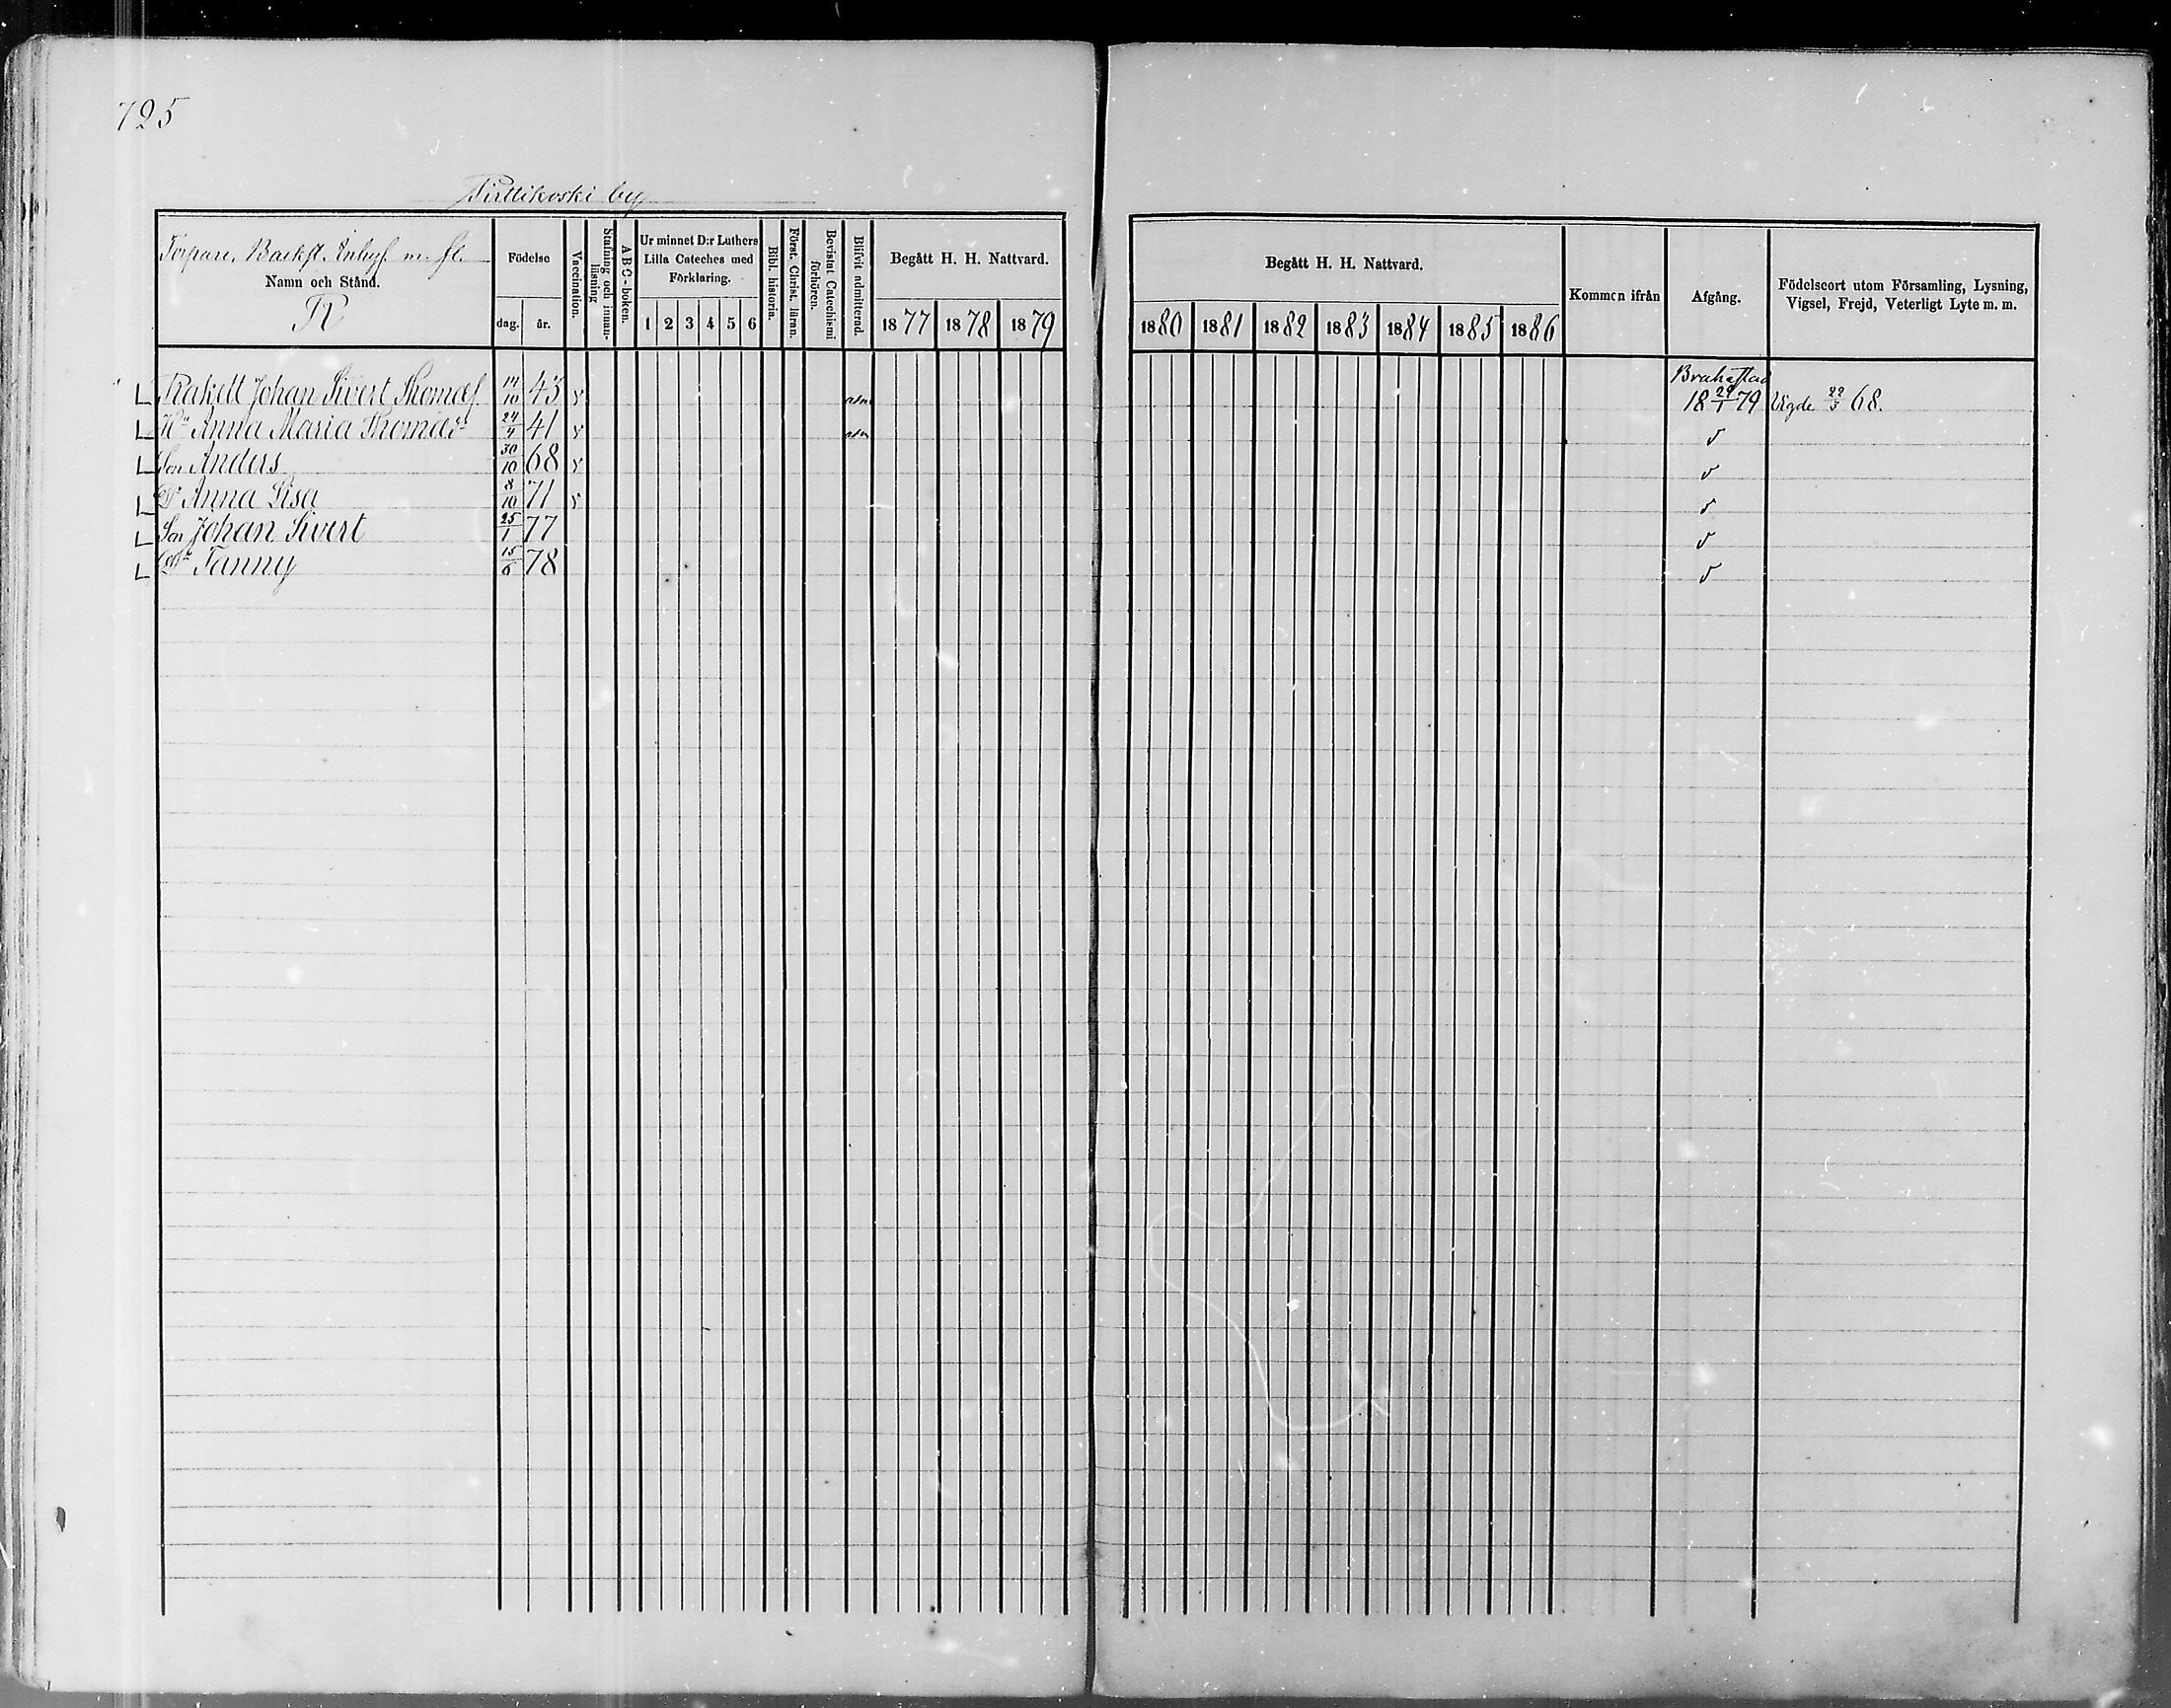 725
Pirttikoski by
Torpare, Backst. Inhys. m. fl.
Namn och Stånd.
R
Födelse
dag. år.
Vaccination.
Stafning och innanläsning
ABC-boken.
Ur minnet D:r Luthers Lilla Cateches med Förklaring.
1 2 3 4 5 6
Bibl. historia.
Först. Christ. läran.
Bevistat Catechismi förhören.
Blifvit admitterad.
Begått H. H. Nattvard.
1877 1878 1879
Begått H. H. Nattvard.
1880 1881 1882 1883 1884 1885 1886
Kommen ifrån
Afgång.
Födelseort utom Församling, Lysning, Vigsel, Frejd, Veterligt Lyte m. m.
Brahestad
Rakett Johan Sivert Thomæs. 14/10 43 v adm 18 29/1 79 Vigde 22/3 68.
Hu Anna Maria Thomasd. 24/4 41 v adm v
Son Anders 30/10 68 v v
Dr Anna Lisa 8/10 71 v v
Son Johan Sivert 25/1 77 v
Dr Fanny 15/6 78 v